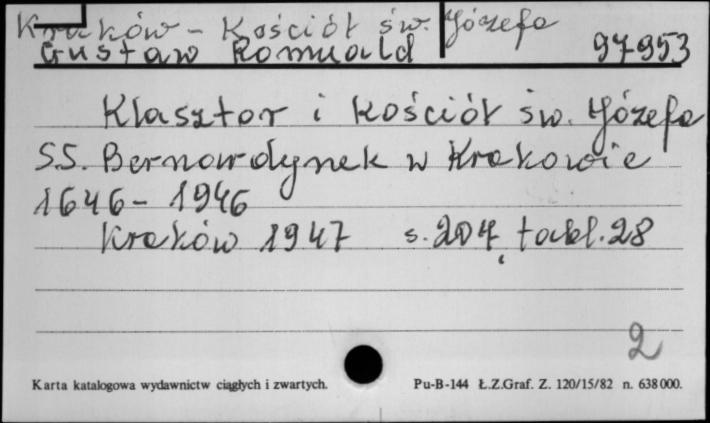 Kraków - Kościół św. Józefa
Gustaw Romuald 97953
Klasztor i kościół św. Józefa
SS. Bernardynek w Krakowie
1646 - 1946
Kraków 1947 s. 204, tabl. 28
2
Karta katalogowa wydawnictw ciągłych i zwartych. Pu-B-144 Ł.Z.Graf. Z. 120/15/82 n. 638000.